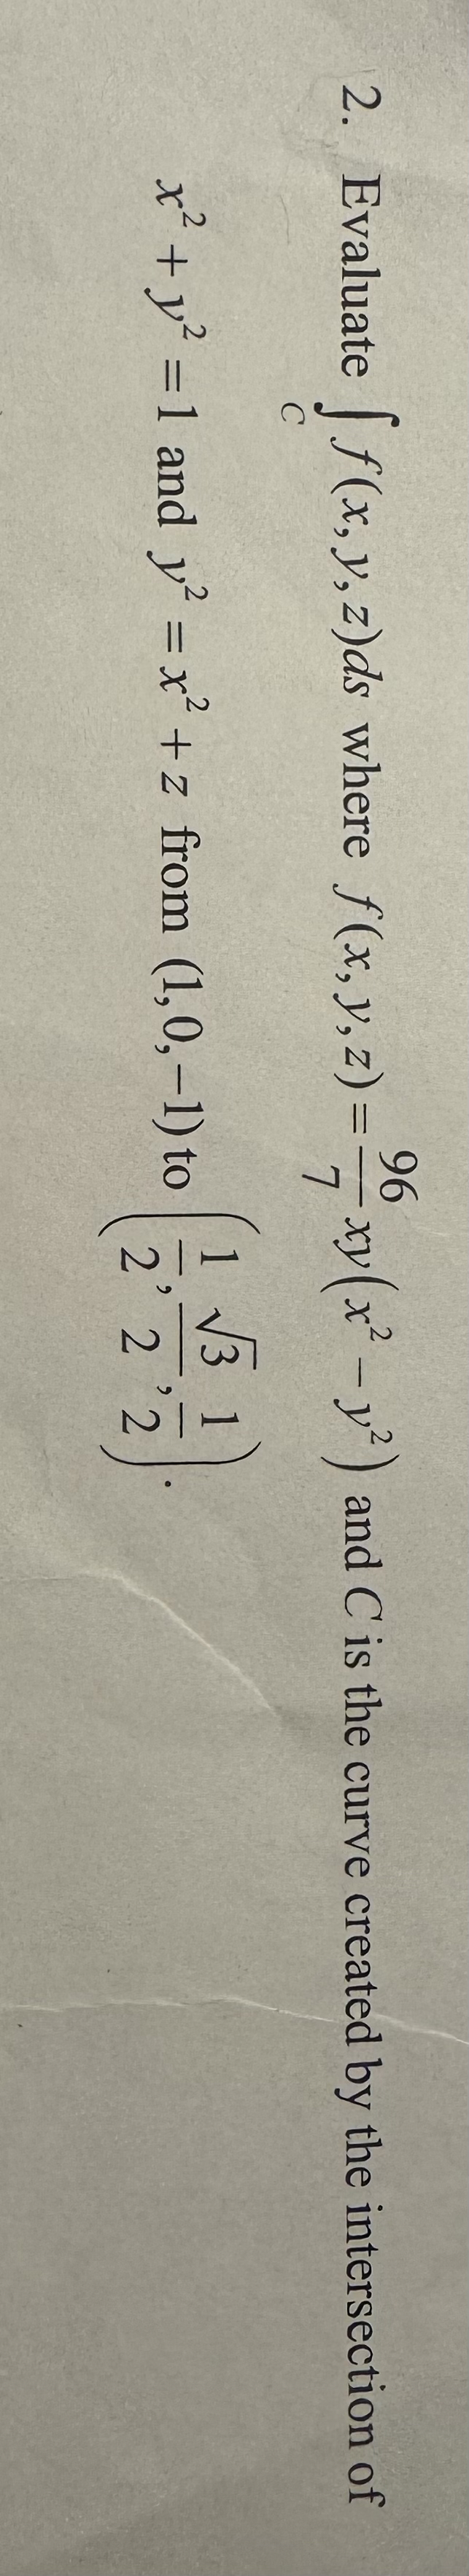 2. Evaluate ∫_C f(x, y, z)ds where f(x, y, z) = \frac{96}{7}xy(x² − y²) and C is the curve created by the intersection of
x² + y² = 1 and y² = x² + z from (1, 0, −1) to (\frac{1}{2}, \frac{√3}{2}, \frac{1}{2}).